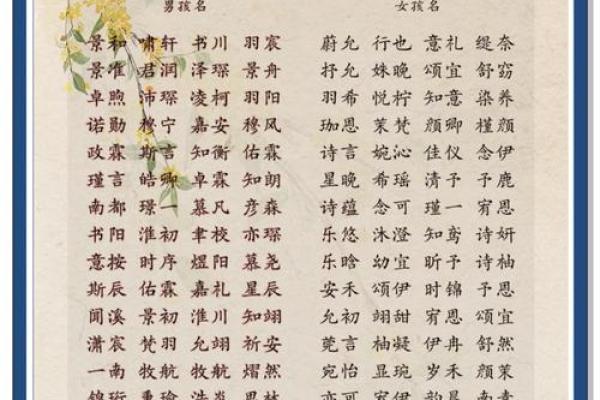 男孩名 女孩名
景和 啸轩 书川 羽宸 蔚允 行也 意礼 缇奈
景淮 君润 泽琛 景舟 抒允 姝晚 颂宜 舒窈
卓煦 沛琛 凌柯 羽阳 羽希 悦柠 知意 染养
诺勋 穆宁 嘉安 穆风 珈恩 茉梵 颜卿 槿颜
政霖 斯言 知衡 佑霖 诗言 婉沁 佳仪 念伊
瑾言 皓卿 卓霖 知朗 星晚 希瑶 清予 予鹿
南都 璟一 慕凡 彦森 诗蕴 念可 瑾一 宥恩
书阳 淮初 聿校 亦琛 乐悠 沐澄 知鸢 诗妍
意按 时序 煜阳 慕尧 乐晗 幼宜 昕予 诗柚
斯辰 佑霖 嘉礼 星辰 安禾 颂伊 时锦 予恩
闻溪 景初 淮川 知翊 允初 翊甜 宥恩 颂宜
潇宸 梵羽 允翊 祈安 莞言 柚凝 伊冉 舒然
一南 牧航 牧航 熠然 宛怡 显琬 予禾 颜茉